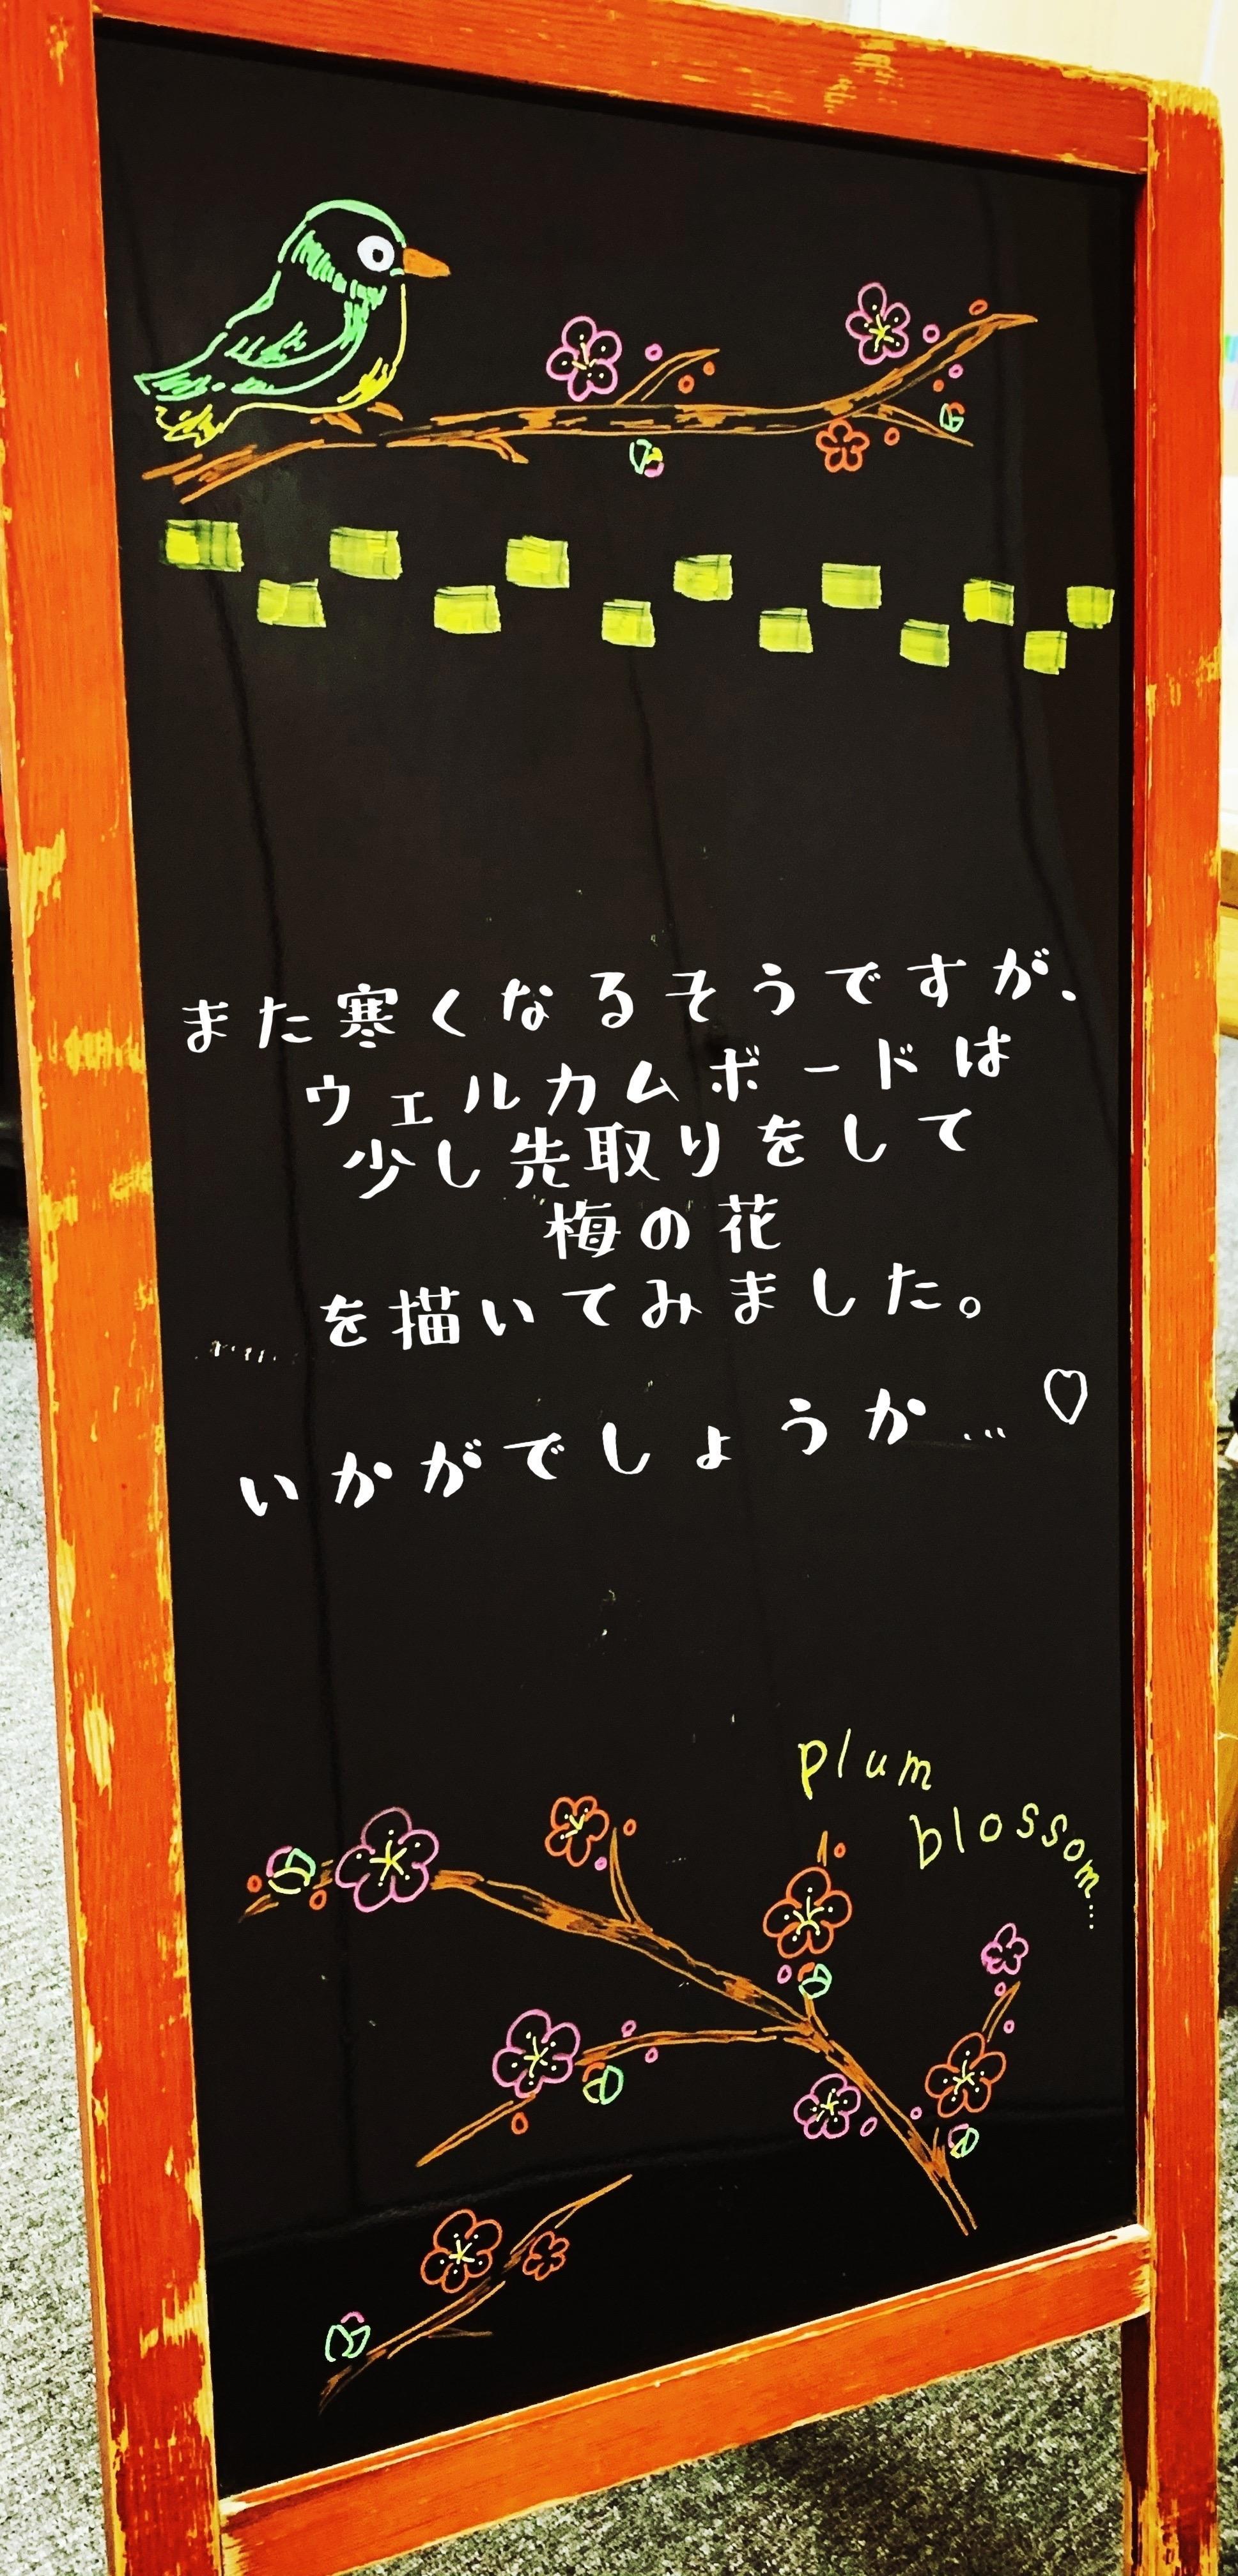 また寒くなるそうですが、
ウェルカムボードは
少し先取りをして
梅の花
を描いてみました。
いかがでしょうか…♡
plum
blossom...